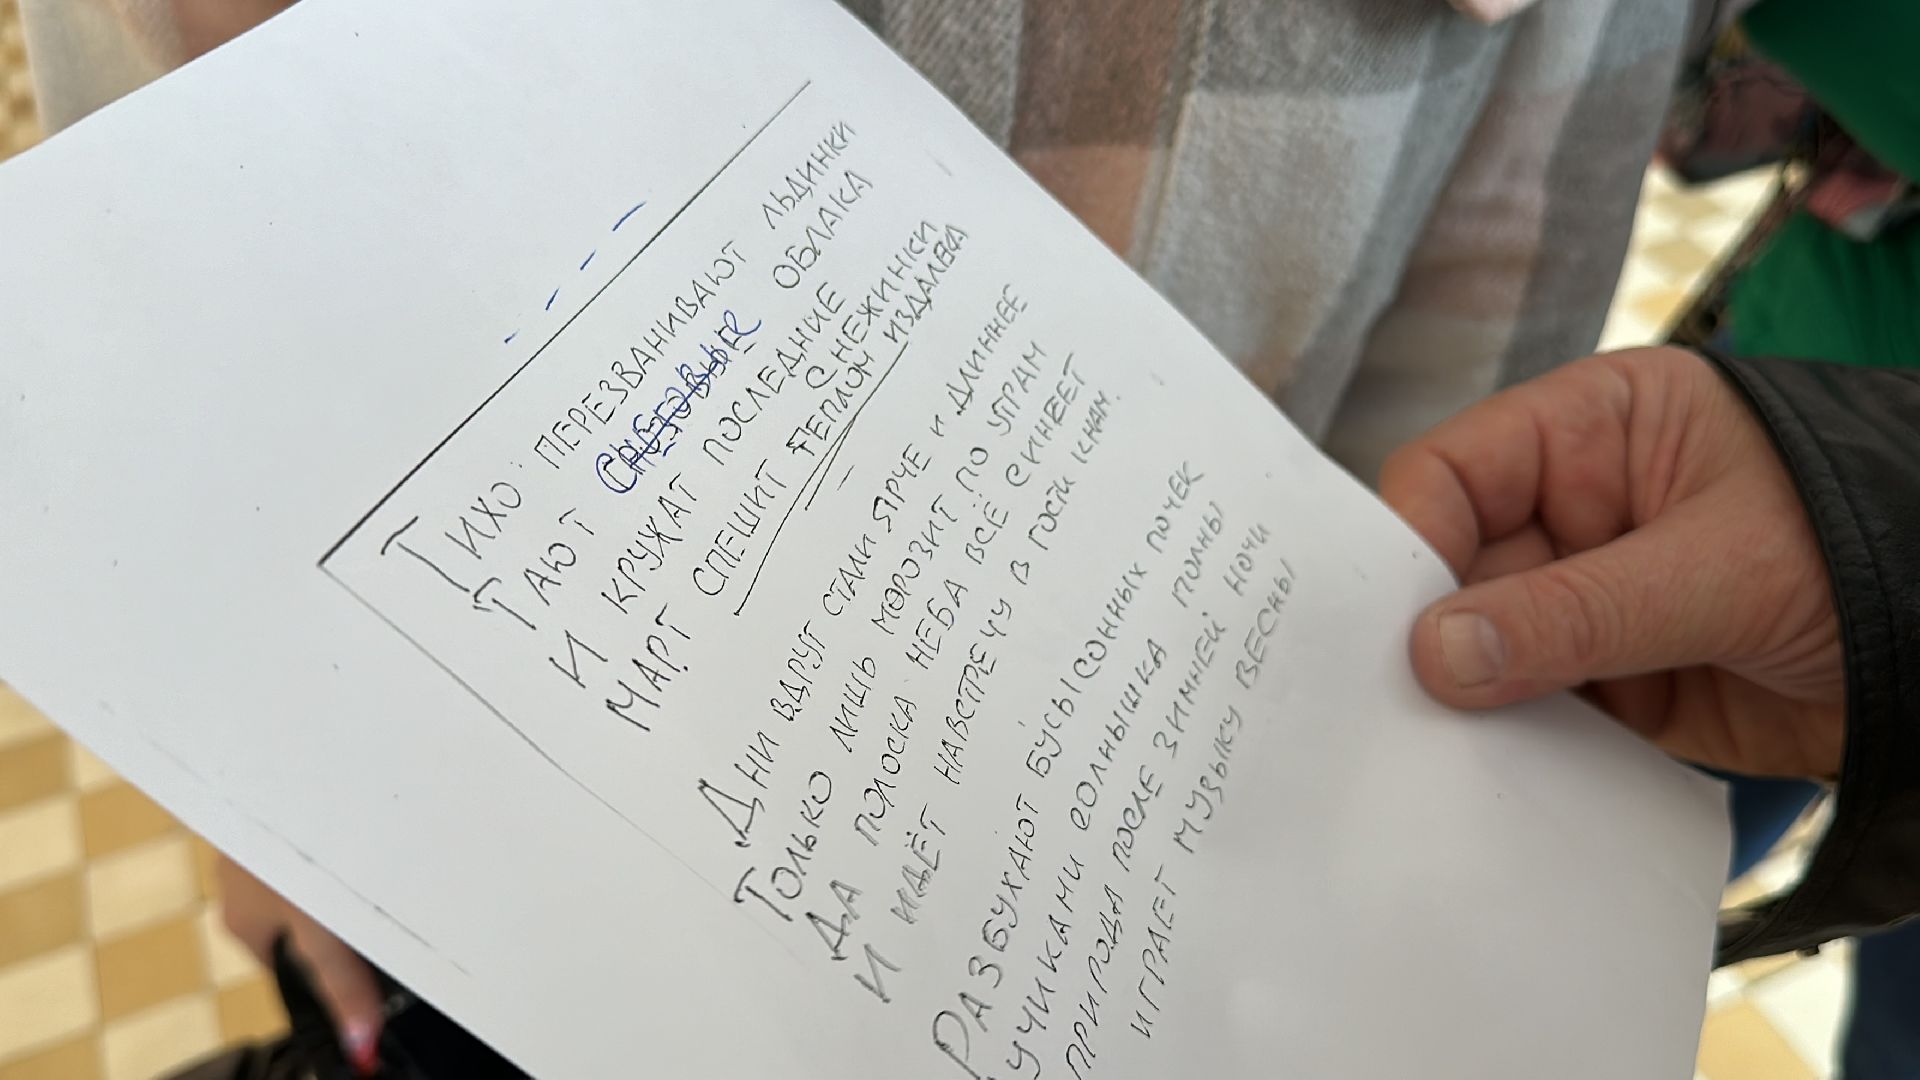 ТИХО ПЕРЕЗВАНИВАЮТ ЛЬДИНКИ
ТАЮТ ОБЛАКА
И КРУЖАТ ПОСЛЕДНИЕ
СНЕЖИНКИ
МАРТ СПЕШИТ ТЕПЛОМ ИЗДАЛЕКА
ДНИ ВДРУГ СТАЛИ ЯРЧЕ И ДЛИННЕЕ
ТОЛЬКО ЛИШЬ МОРОЗИТ ПО УТРАМ
ДА ПОЛОСКА НЕБА ВСЁ СИНЕЕТ
И ИДЁТ НАВСТРЕЧУ В ГОСТИ К НАМ.
РАЗБУХАЮТ БУСЫ СОННЫХ ПОЧЕК
ЛУЧИКАМИ СОЛНЫШКА ПОЛНЫ
ПРИРОДА ПОСЛЕ ЗИМНЕЙ НОЧИ
ИГРАЕТ МУЗЫКУ ВЕСНЫ